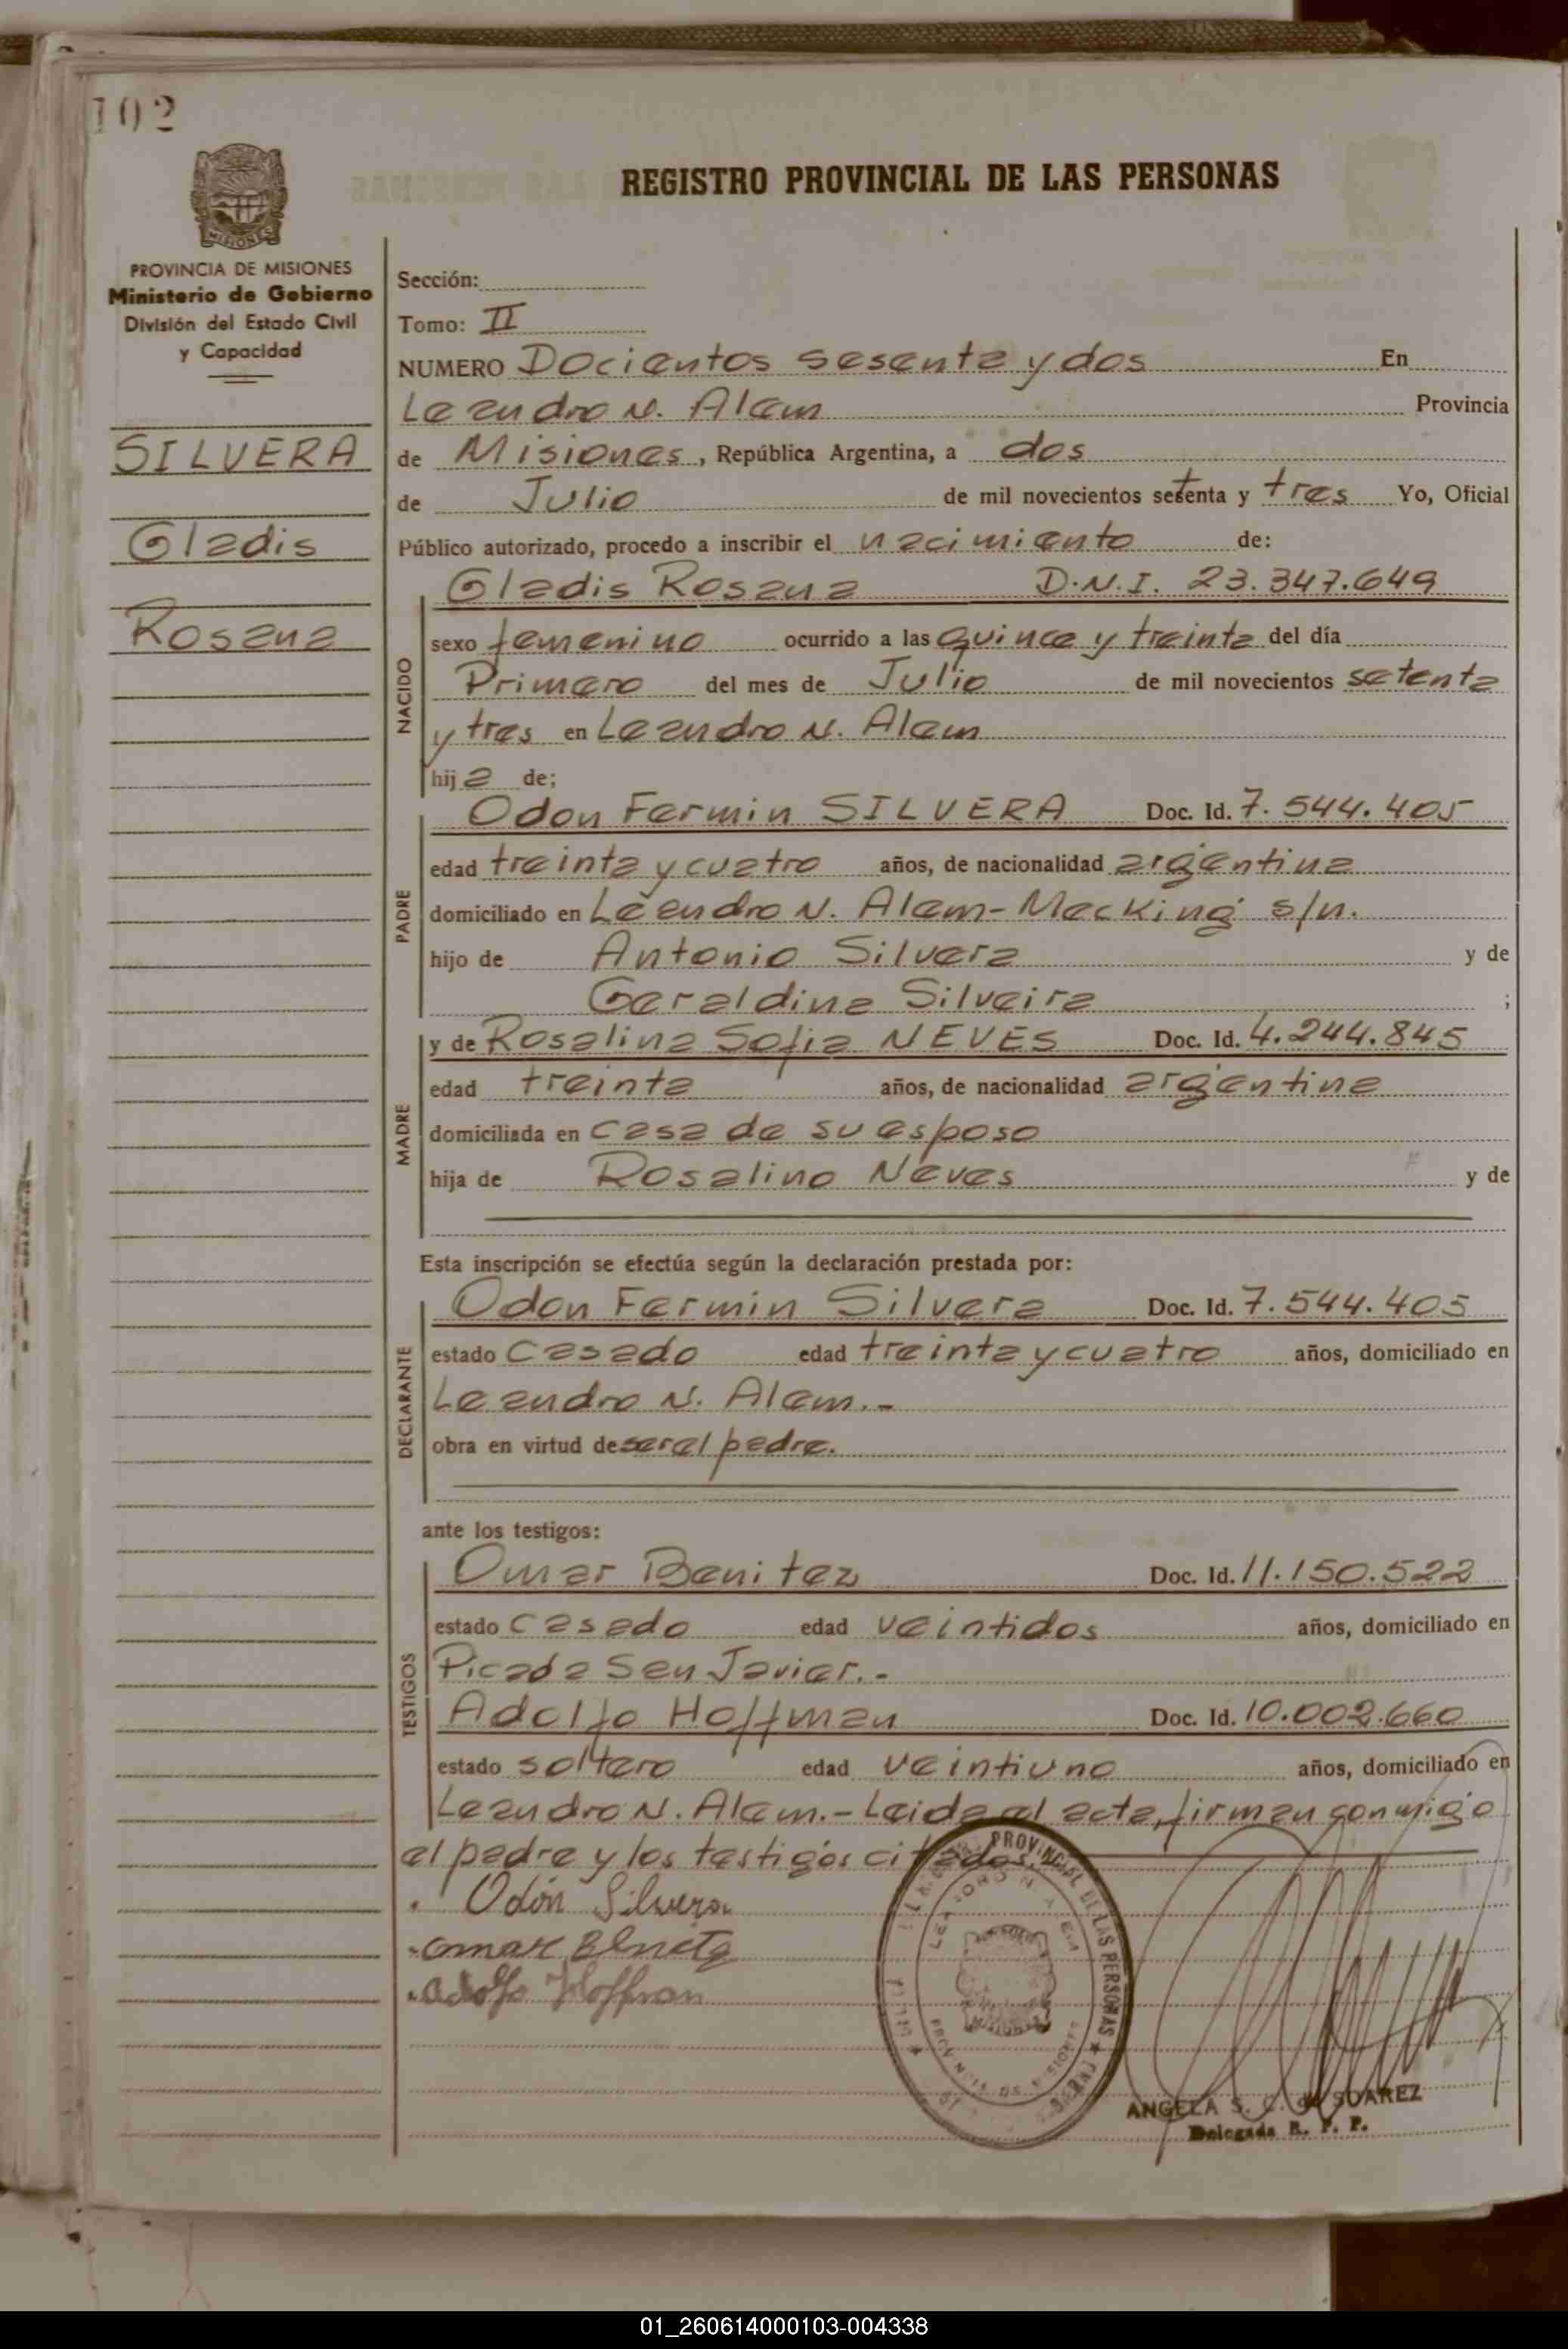 102
REGISTRO PROVINCIAL DE LAS PERSONAS
MISIONES
PROVINCIA DE MISIONES
Ministerio de Gobierno
División del Estado Civil
y Capacidad
SILVERA
Gladis
Rosana
Sección:
Tomo: II
NUMERO Docientos sesenta y dos En
Leandro N. Alem Provincia
de Misiones, República Argentina, a dos
de Julio de mil novecientos setenta y tres Yo, Oficial
Público autorizado, procedo a inscribir el nacimiento de:
NACIDO
Gladis Rosana D.N.I. 23.347.649
sexo femenino ocurrido a las quince y treinta del día
Primero del mes de Julio de mil novecientos setenta
y tres en Leandro N. Alem
hija de;
PADRE
Odon Fermin SILVERA Doc. Id. 7.544.405
edad treinta y cuatro años, de nacionalidad argentina
domiciliado en Leandro N. Alem-Mecking s/n.
hijo de Antonio Silvera y de
Geraldina Silveira ;
MADRE
y de Rosalina Sofia NEVES Doc. Id. 4.244.845
edad treinta años, de nacionalidad argentina
domiciliada en casa de su esposo
hija de Rosalino Neves y de
Esta inscripción se efectúa según la declaración prestada por:
DECLARANTE
Odon Fermin Silvera Doc. Id. 7.544.405
estado casado edad treinta y cuatro años, domiciliado en
Leandro N. Alem.-
obra en virtud de ser el padre.
ante los testigos:
TESTIGOS
Omar Benitez Doc. Id. 11.150.522
estado casado edad veintidos años, domiciliado en
Picada San Javier.-
Adolfo Hoffman Doc. Id. 10.002.660
estado soltero edad veintiuno años, domiciliado en
Leandro N. Alem.- Leida el acta, firman conmigo
el padre y los testigos citados.
Odón Silvera
Omar Benitez
Adolfo Hoffman
PROVINCIAL DE LAS PERSONAS
LEANDRO N. ALEM
PROVINCIA DE MISIONES
ANGELA S. C. de SUAREZ
Delegada R. P. P.
01_260614000103-004338